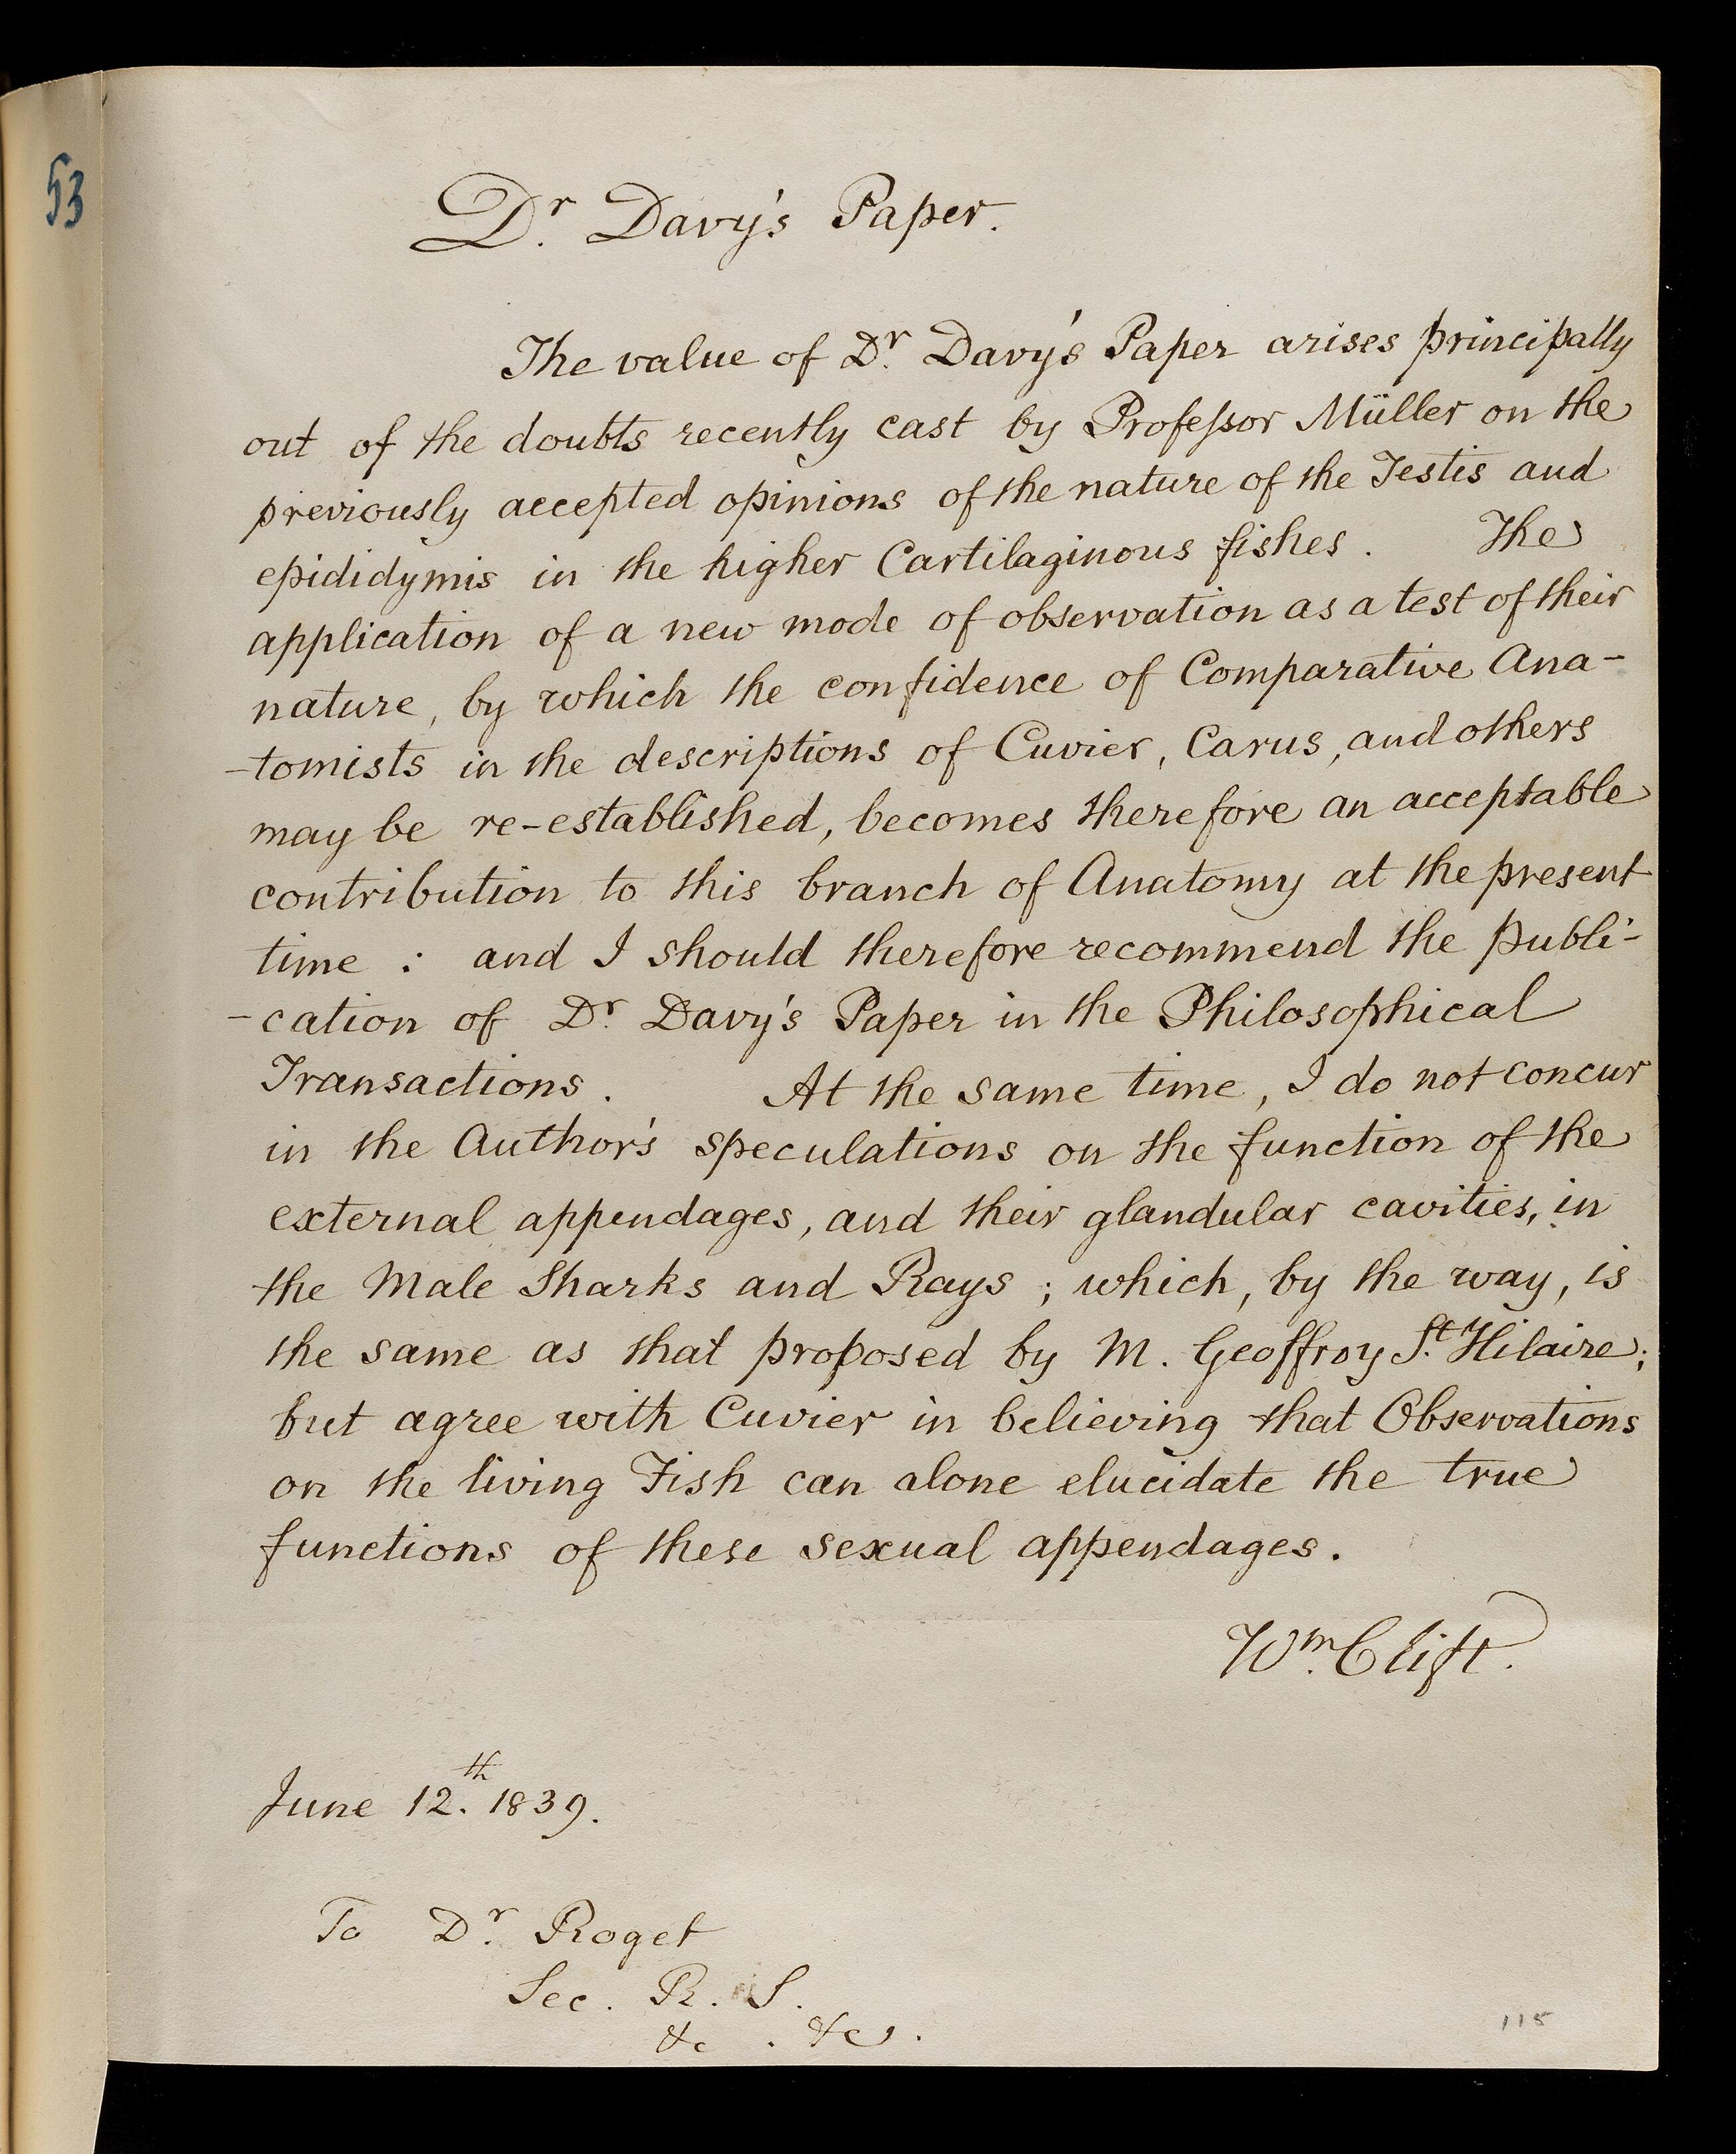 53
Dr. Davy's Paper.
The value of Dr. Davy's Paper arises principally
out of the doubts recently cast by Professor Müller on the
previously accepted opinions of the nature of the Testis and
epididymis in the higher Cartilaginous fishes. The
application of a new mode of observation as a test of their
nature, by which the confidence of Comparative Ana-
-tomists in the descriptions of Cuvier, Carus, and others
may be re-established, becomes therefore an acceptable
contribution to this branch of Anatomy at the present
time : and I should therefore recommend the publi-
-cation of Dr. Davy's Paper in the Philosophical
Transactions. At the same time, I do not concur
in the Author's speculations on the function of the
external appendages, and their glandular cavities, in
the Male Sharks and Rays ; which, by the way, is
the same as that proposed by M. Geoffroy St. Hilaire;
but agree with Cuvier in believing that Observations
on the living Fish can alone elucidate the true
functions of these sexual appendages.
Wm. Clift.
June 12.th 1839.
To Dr. Roget
Sec. R. S.
&c . &c.
115